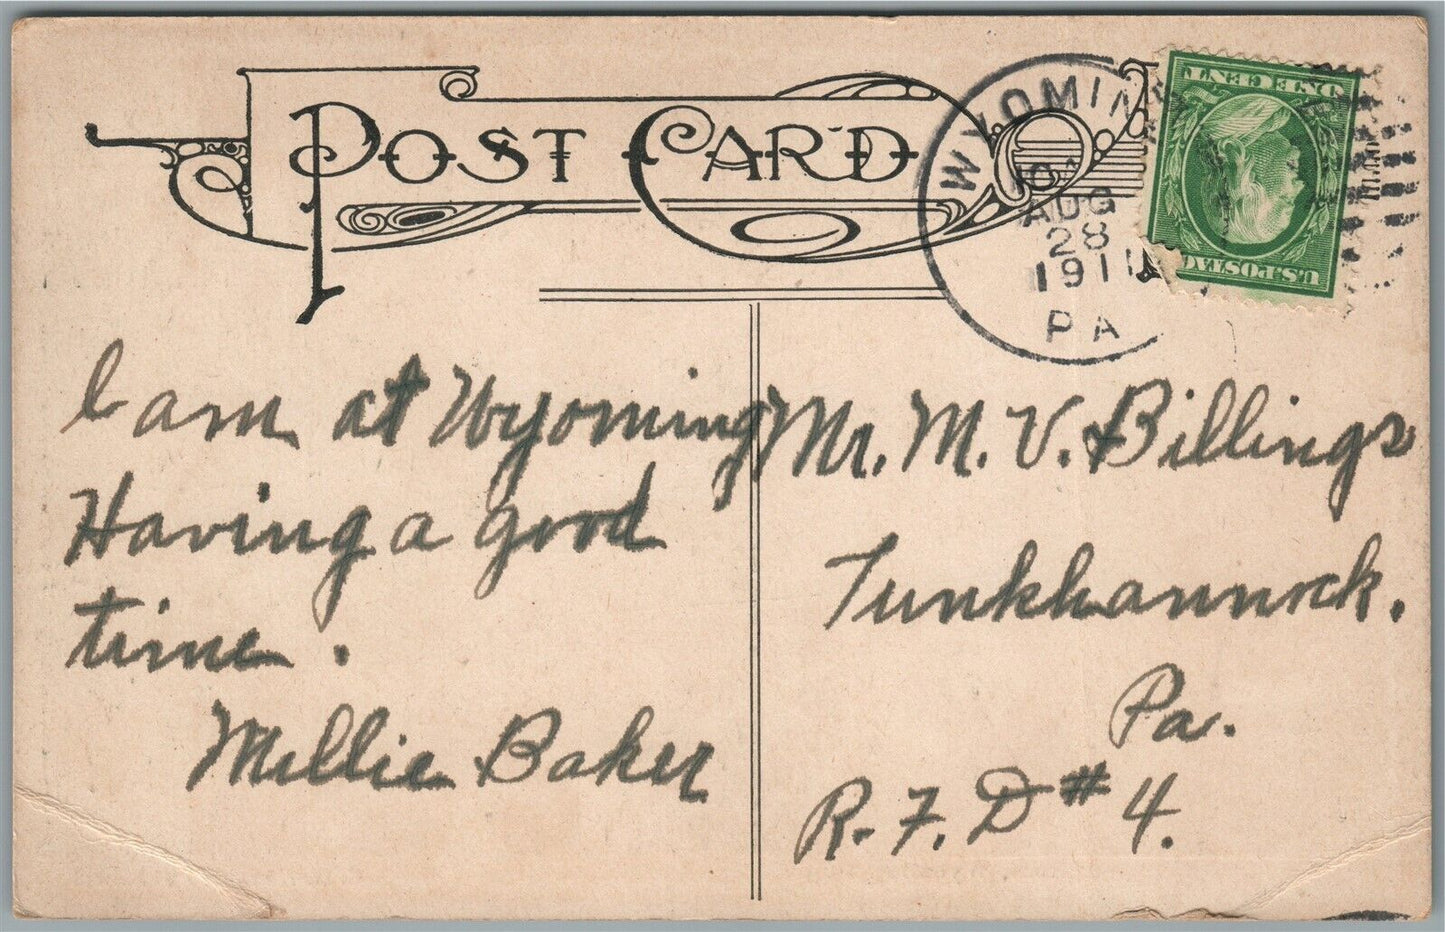 POST CARD
WYOMIN
AUG
28
1911
PA
ONE CENT
U.S. POSTAG
I am at Wyoming
Having a good
time.
Millie Baker
Mr. M. V. Billings
Tunkhannock.
Pa.
R. F. D # 4.